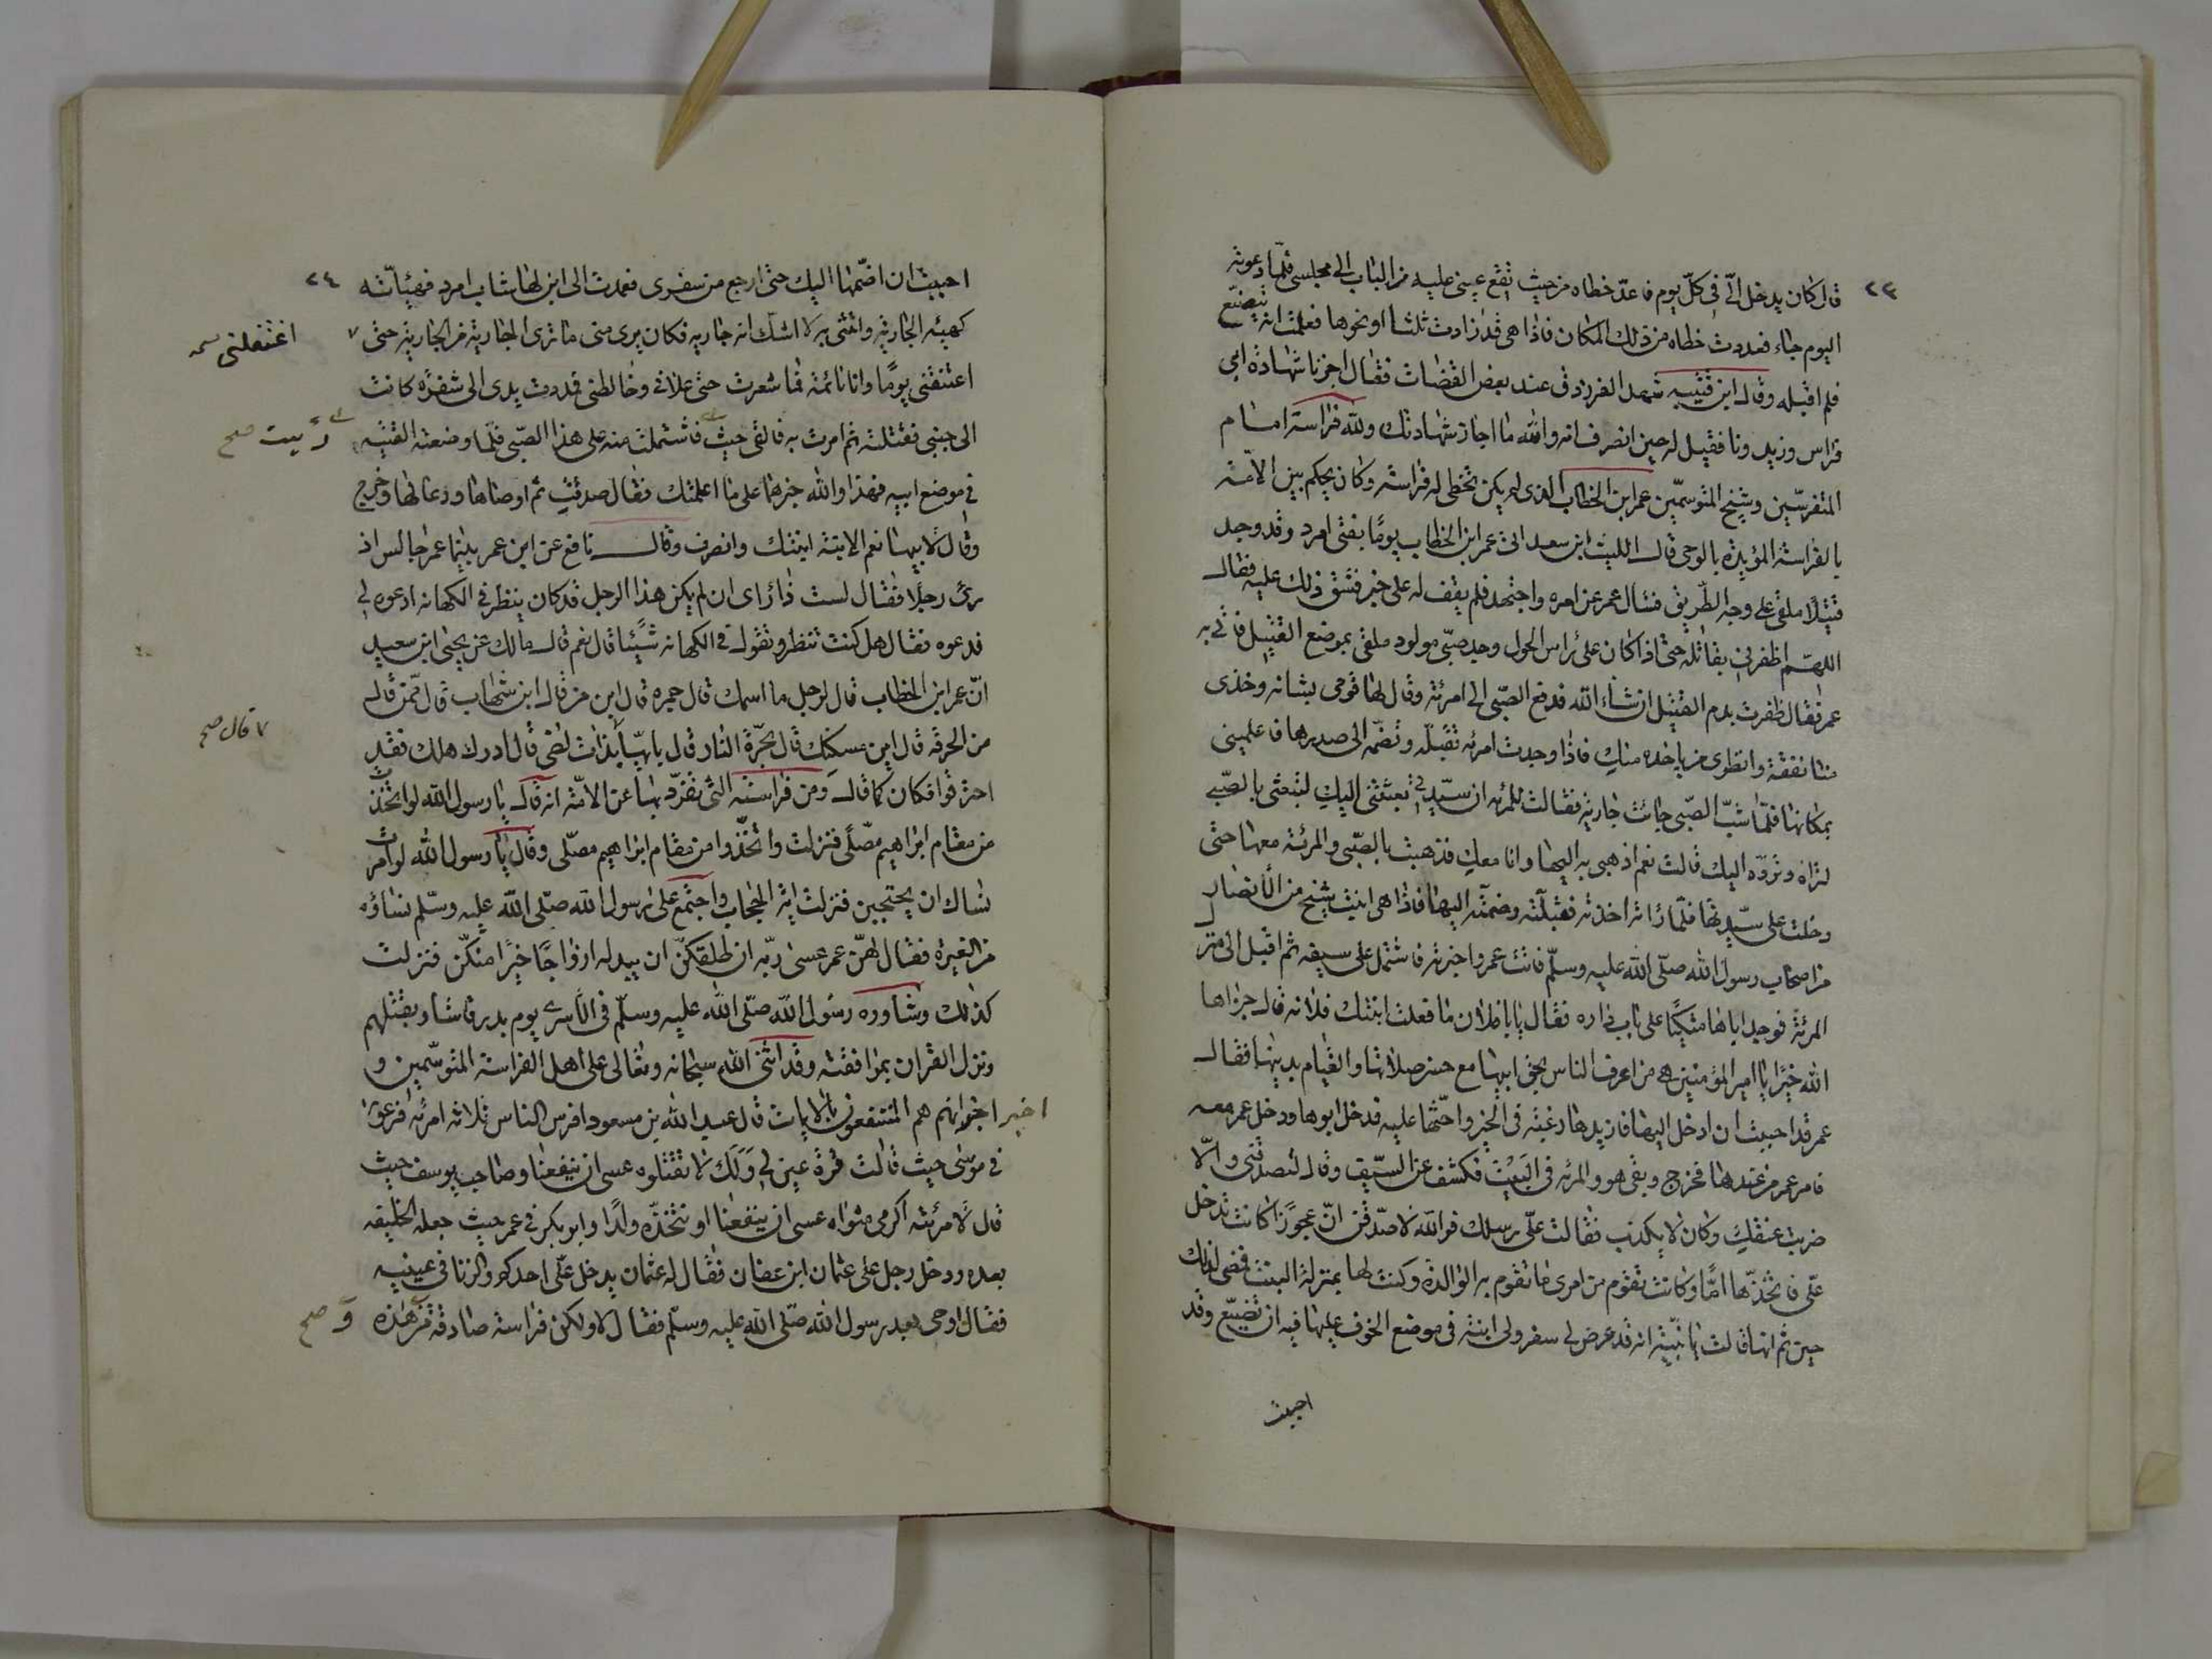 ٢٣
قال كان يدخل الّى فى كلّ يوم فاعدّ خطاه من حيث تقع عينى عليه من الباب الى مجلسى فلمّا دعوته
اليوم جاء فعددت خطاه من ذلك المكان فاذا هى قد زادت ثلثا او نحوها فعلمت انه تصنّع
فلم اقبله وقال ابن قتيبه شهد الفرزدق عند بعض القضات فقال اجزنا شهادة ابى
فراس وزيدونا فقيل له حين انصرف انه والله ما اجاز شهادتك ولله فراسة امام
المتفرسّين وشيخ المتوسمّين عمر ابن الخطاب الذى لم يكن تخطى له فراسته وكان يحكم بين الامّة
بالفراسة المؤيدة بالوحى قال الليث ابن سعد اتى عمر ابن الخطاب يومًا بفتى امرد وقد وجد
قتيلًا ملقى على وجه الطّريق فسال عمر عن امره واجتهد فلم يقف له على خبر فشق ذلك عليه فقال
اللهّم اظفرنى بقاتله حتى اذا كان على رأس الحول وجد صبّى مولود ملقى بموضع القتيل فاتى به
عمر فقال ظفرت بدم القتيل ان شاء الله فدفع الصّبى الى امرئة وقال لها قومى بشانه وخذى
منا نفقة وانظرى من ياخذه منك فاذا وجدت امرئه تقبّله وتضمّه الى صدرها فاعلمينى
بمكانها فلمّا شبّ الصّبى جائت جارية فقالت للمرئه ان سيّدتى بعثتنى اليك لتبعثى بالصّبى
لتراه وتردّه اليك قالت نعم اذهبى به اليها وانا معك فذهبت بالصّبى والمرئة معها حتى
دخلت على سيّدتها فلمّا رأته اخذته فقبلّته وضمّته اليها فاذا هى ابنت شيخ من الأنصار
من اصحاب رسول الله صلّى الله عليه وسلّم فاتت عمر واخبرته فاشتمل على سيفه ثم اقبل الى منزل
المرئة فوجد اباها متكئًا على باب داره فقال يا با فلان ما فعلت ابنتك فلانه قال جزاها
الله خيرًا يا امير المؤمنين هى من اعرف الناس بحق ابيها مع حسن صلاتها والقيام بدينها فقال
عمر قد احببت ان ادخل اليها فازيدها رغبة فى الخير واحّثها عليه فدخل ابوها ودخل عمر معه
فامر عمر من عندها فخرج وبقى هو والمرئه فى البيت فكشف عن السّيف وقال لتصدقنى والّا
ضربت عنقك وكان لا يكذب فقالت على رسلك فوالله لاصدّقن انّ عجوزًا كانت تدخل
علّى فاتخذّها امًّا وكانت تقوم من امرى ما تقوم به الوالدة وكنت لها بمنزلة البنت فمضى لذلك
حين ثم انها قالت يا بنيّة انه قد عرض لى سفر ولى ابنة فى موضع اتخوف عليها فيه ان تضيّع وقد
احببت
٢٤
احببت ان اضّمها اليك حتى ارجع من سفرى فعمدت الى ابن لها شاب امرد فهيّأته
كهيئه الجارية واتتنى به لا اشكّ انه جاريه فكان يرى منى ما ترى الجارية من الجارية حتى
اغتفلنى
اعتنقنى يومًا وانا نائمة فما شعرت حتى علانى وخالطنى فددت يدى الى شفرة كانت
الى جنبى فقتلته ثم امرت به فالقى حيث فاشتملت منه على هذا الصّبى فلمّا وضعته القيته
رئيت صح
فى موضع ابيه فهذا والله خبرهما على ما اعلمتك فقال صدقت ثم اوصاها ودعا لها وخرج
وقال لابيها نعم الابنة ابنتك وانصرف وقال نافع عن ابن عمر بينما عمر جالس اذ
رئ رجلًا فقال لست ذا راى ان لم يكن هذا الرجل قد كان ينظر فى الكهانه ادعوه لى
فدعوه فقال هل كنت تنظر وتقول فى الكهانه شيئًا قال نعم قال مالك عن يحيى ابن سعيد
انّ عمر ابن الخطاب قال لرجل ما اسمك قال جمره قال ابن من قال ابن شهاب قال ممّن قال
من الحرقه قال اين مسكنك قال بحرّة النار قال بايهّا بذات لظى قال ادرك اهلك فقد
قال صح
احترقوا فكان كما قال ومن فراسته التى تفرّد بها عن الامّة انه قال يا رسول الله لو اتخذت
من مقام ابراهيم مصلّى فنزلت واتّخذوا من مقام ابراهيم مصلّى وقال يا رسول الله لو امرت
نساك ان يحتجبن فنزلت اية الحجاب واجتمع على رسول الله صلّى الله عليه وسلّم نساؤه
من الغيرة فقال لهّن عمر عسى ربّه ان طلقكنّ ان يبدله ازواجًا خيرًا منكّن فنزلت
كذلك وشاوره رسول الله صلّى الله عليه وسلّم فى الأسرى يوم بدر فاشار بقتلهم
ونزل القران بموافقته وقد اثنى الله سبحانه وتعالى على اهل الفراسة المتوسّمين و
اخبر انهم هم المنتفعون بالايات قال عبد الله بن مسعود افرس الناس ثلاثه امرئه فرعون
فى موسى حيث قالت قرة عين لى ولك لا تقتلوه عسى ان ينفعنا وصاحب يوسف حيث
قال لامرئته اكرمى مثواه عسى ان ينفعنا او نتخذّه ولدًا وابو بكر فى عمر حيث جعله الخليفه
بعده ودخل رجل على عثمان ابن عفان فقال له عثمان يدخل علّى احدكم والزنا فى عينيه
فقال اوحى بعد رسول الله صلّى الله عليه وسلّم فقال لا ولكن فراسة صادقة فهذه
و صح